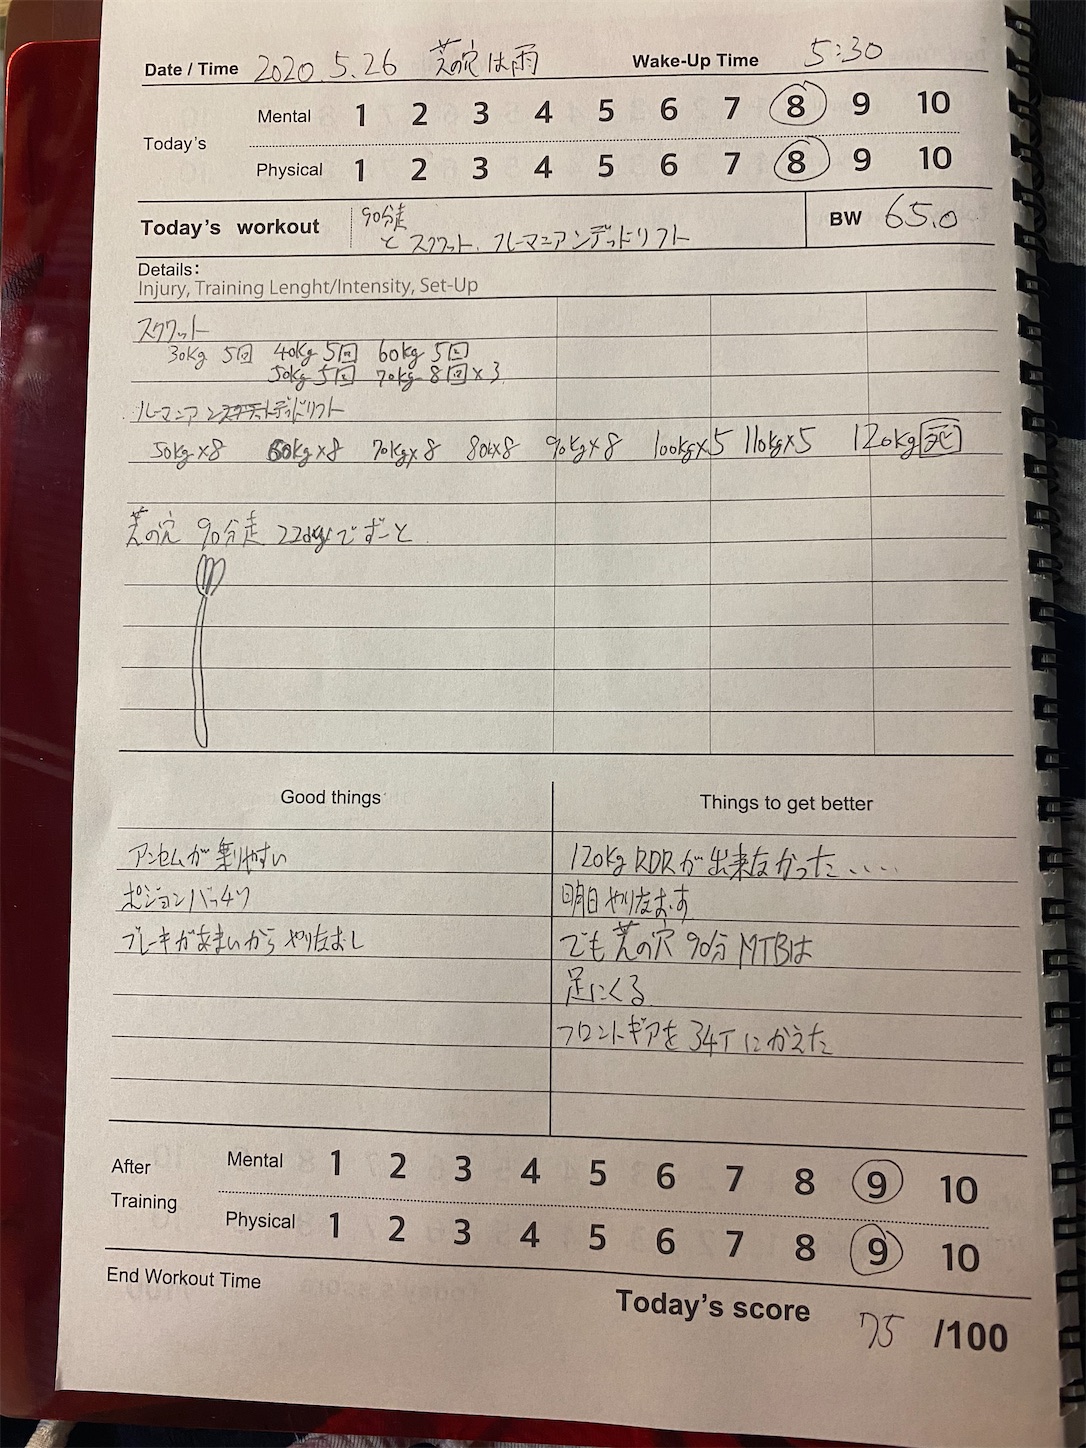 Date / Time 2020.5.26 芝の穴は雨 Wake-Up Time 5:30
Today's
Mental 1 2 3 4 5 6 7 8 9 10
Physical 1 2 3 4 5 6 7 8 9 10
Today's workout 90分走
とスクワット、ルーマニアンデッドリフト
BW 65.0
Details:
Injury, Training Lenght/Intensity, Set-Up
スクワット
30kg 5回 40kg 5回 60kg 5回
50kg 5回 70kg 8回×3
ルーマニアンデッドリフト
50kg×8 60kg×8 70kg×8 80k×8 90kg×8 100kg×5 110kg×5 120kg死
の穴 90分走 でずーと
Good things
アンセムが乗りやすい
ポジョンバッチリ
ブレーキがあまいからやりなおし
Things to get better
120kg RDRが出来なかった....
明日やりなおす
でも の穴 90分 MTBは
足にくる
フロントギアを34Tにかえた
After
Training
Mental 1 2 3 4 5 6 7 8 9 10
Physical 1 2 3 4 5 6 7 8 9 10
End Workout Time
Today's score 75 /100